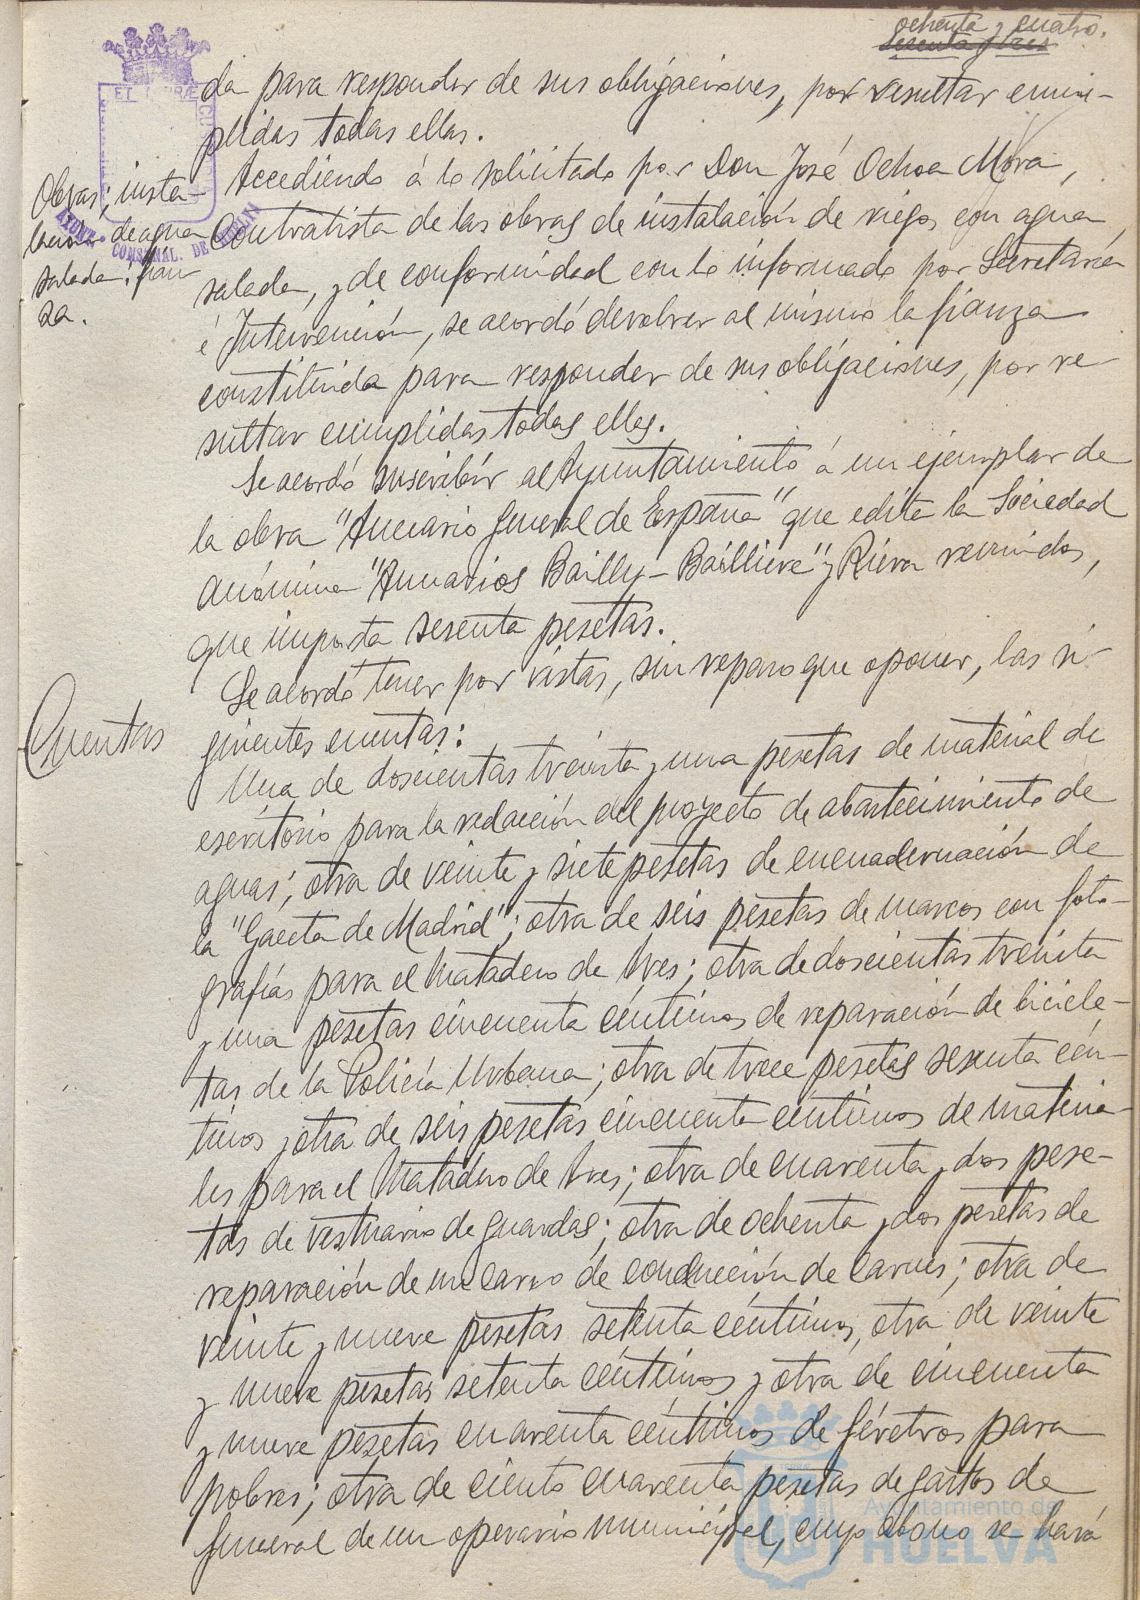 ochenta y cuatro.
sesenta y tres
da para responder de sus obligaciones, por resultar cum-
plidas todas ellas.
Obras; insta-
lación de agua
salada: fian
za.
Accediendo á lo solicitado por Don José Ochoa Mora,
Contratista de las obras de instalación de riegos con agua
salada, y de conformidad con lo informado por Secretaría
é Intervención, se acordó devolver al mismo la fianza
constituida para responder de sus obligaciones, por re
sultar cumplidas todas ellas.
Se acordó suscribir al Ayuntamiento á un ejemplar de
la obra "Anuario General de España" que edita la Sociedad
Anónima "Anuarios Bailly-Bailliere" y Riera reunidos,
que importa sesenta pesetas.
Cuentas
Se acordó tener por vistas, sin reparo que oponer, las si-
guientes cuentas:
Una de doscientas treinta y una pesetas de material de
escritorio para la redacción del proyecto de abastecimiento de
aguas; otra de veinte y siete pesetas de encuadernación de
la "Gaceta de Madrid"; otra de seis pesetas de marcos con foto-
grafías para el Matadero de tres; otra de doscientas treinta
y una pesetas cincuenta céntimos de reparación de bicicle-
tas de la Policía Urbana; otra de trece pesetas sesenta cén-
timos y otra de seis pesetas cincuenta céntimos de materia-
les para el Matadero de tres; otra de cuarenta y dos pese-
tas de vestuario de guardas; otra de ochenta y dos pesetas de
reparación de un carro de conducción de carnes; otra de
veinte y nueve pesetas setenta céntimos, otra de veinte
y nueve pesetas setenta céntimos y otra de cincuenta
y nueve pesetas cuarenta céntimos de féretros para
pobres; otra de ciento cuarenta pesetas de gastos de
funeral de un operario municipal, cuyo abono se hará
Ayuntamiento de
HUELVA